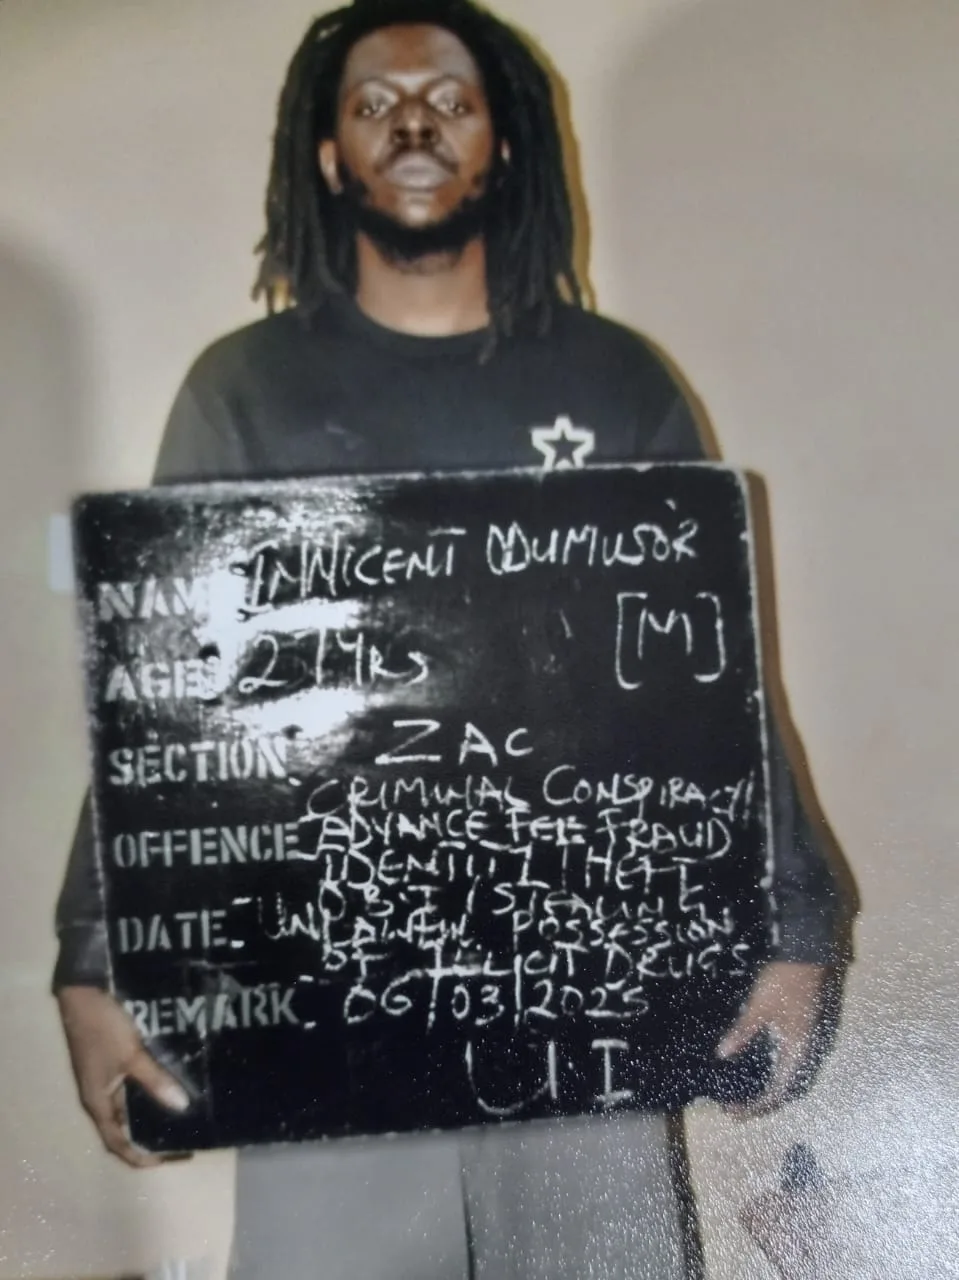 NAME INNICENT ODUMUSOR
AGE 27YRS [M]
SECTION: ZAC
CRIMINAL CONSPIRACY/
OFFENCE ADVANCE FEE FRAUD
IDENTITY THEFT
O.B.T / STEALING
DATE- UNLAWFUL POSSESSION
OF ILLICIT DRUGS
REMARK- 06/03/2025
U I